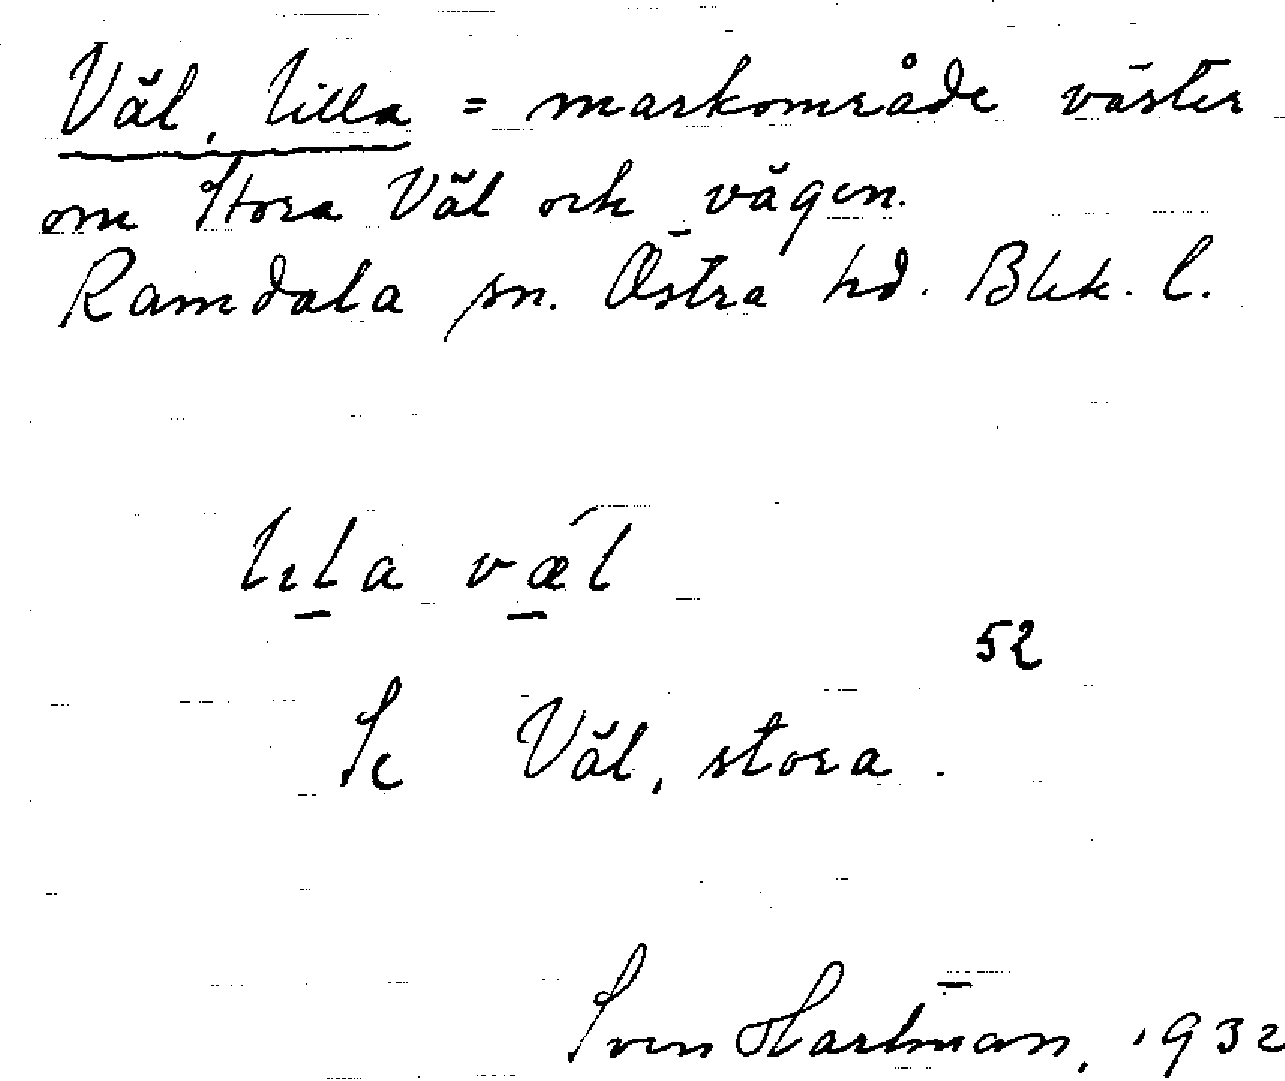 Väl, Lilla = markområde väster
om Stora Väl och vägen.
Ramdala sn. Östra hd. Blek. l.
lɩla væ´l
52
Se Väl, stora.
Sven Hartman, 1932